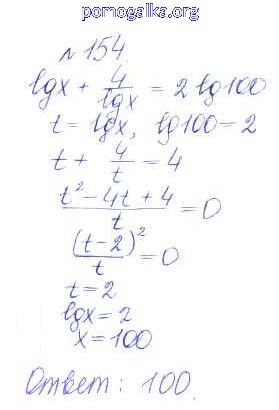 pomogalka.org
№ 154.
lgx + 4/lgx = 2 lg100
t = lgx, lg100 = 2
t + 4/t = 4
(t² - 4t + 4)/t = 0
(t-2)²/t = 0
t = 2
lgx = 2
x = 100
Ответ: 100.